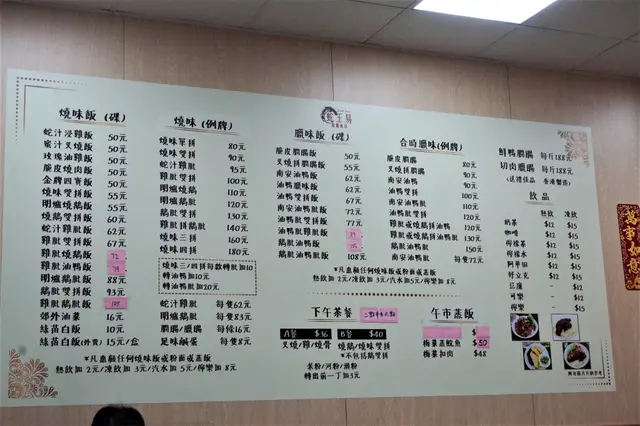 燒味飯(碟)
蛇汁浸雞飯 50元
蜜汁叉燒飯 50元
玫瑰油雞飯 50元
脆皮燒肉飯 50元
金牌四寶飯 50元
燒味雙拼飯 55元
明爐燒鵝飯 55元
燒鵝雙拼飯 60元
蛇汁雞髀飯 62元
雞髀雙拼飯 67元
雞髀燒鵝飯 72
雞髀油鴨飯
明爐鵝髀飯 88元
鵝髀雙拼飯 93元
雞髀鵝髀飯
郊外油菜 16元
絲苗白飯 10元
絲苗白飯(外賣) 15元/盒
*凡惠顧任何燒味飯或粉面或蒸飯
熱飲加 2元/凍飲加 3元/汽水加 5元/檸樂加 8元
燒味(例牌)
燒味單拼 80元
燒味雙拼 90元
蛇汁雞髀 95元
雞髀雙拼 100元
明爐燒鵝 110元
燒鵝雙拼 120元
明爐鵝髀 120元
鵝髀雙拼 130元
雞髀拼鵝髀 140元
燒味三拼 160元
燒味四拼 180元
燒味三/四拼每款轉髀加10
轉油鴨加10元
轉油鴨髀加20元
蛇汁雞髀 每隻62元
明爐鵝髀 每隻83元
臘腸/膶腸 每條16元
足味鹹蛋 每隻8元
蛇王芬
臘味飯(碟)
脆皮膶腸飯 50元
叉燒拼膶腸飯 55元
南安油鴨飯 62元
油鴨臘味飯 62元
油鴨雙拼飯 67元
南安油鴨髀飯 72元
油鴨髀雙拼飯 77元
油鴨髀臘味飯 77元
油鴨髀雞髀飯
鵝髀油鴨飯
鵝髀油鴨髀飯 108元
*凡惠顧任何燒味飯或粉面或蒸飯
熱飲加 2元/凍飲加 3元/汽水加 5元/檸樂加 8元
合時臘味(例牌)
脆皮膶腸 80元
叉燒拼膶腸 90元
南安油鴨 90元
油鴨雙拼 100元
南安油鴨髀 110元
油鴨髀雙拼 120元
雞髀或燒鵝拼油鴨 120元
雞髀或燒鵝拼油鴨髀 130元
鵝髀拼油鴨 130元
鵝髀油鴨髀 150元
脆皮乳鴿 每隻72元
鮮鴨膶腸 每斤188元
切肉臘腸 每斤188元
(送禮佳品 香港製造)
飲品
熱飲 凍飲
奶茶 $12 $15
咖啡 $12 $15
檸檬茶 $12 $15
檸檬水 $12 $15
阿華田 $12 $15
好立克 $12 $15
豆漿 - $15
可樂 - $15
檸樂 - $15
下午茶餐
A餐 $36
叉燒/雞/燒骨
B餐 $40
燒鵝/燒味雙拼
*不包括鵝雙拼
米粉/河粉/瀨粉
轉出前一丁加3元
午市蒸飯
$50
梅菜蒸鯇魚
梅菜扣肉 $48